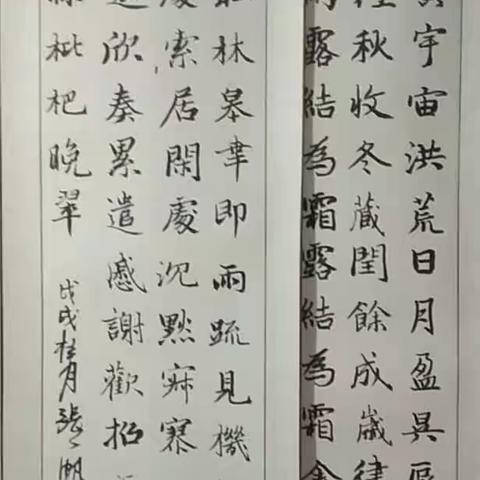 宇宙洪荒日月盈昃辰
往秋收冬藏閏餘成歲律
露結為霜露結為霜金
林皋幸即兩疏見機
索居閑處沉默寂寥
欣奏累遣慼謝歡招
枇杷晚翠
戊戌桂月張